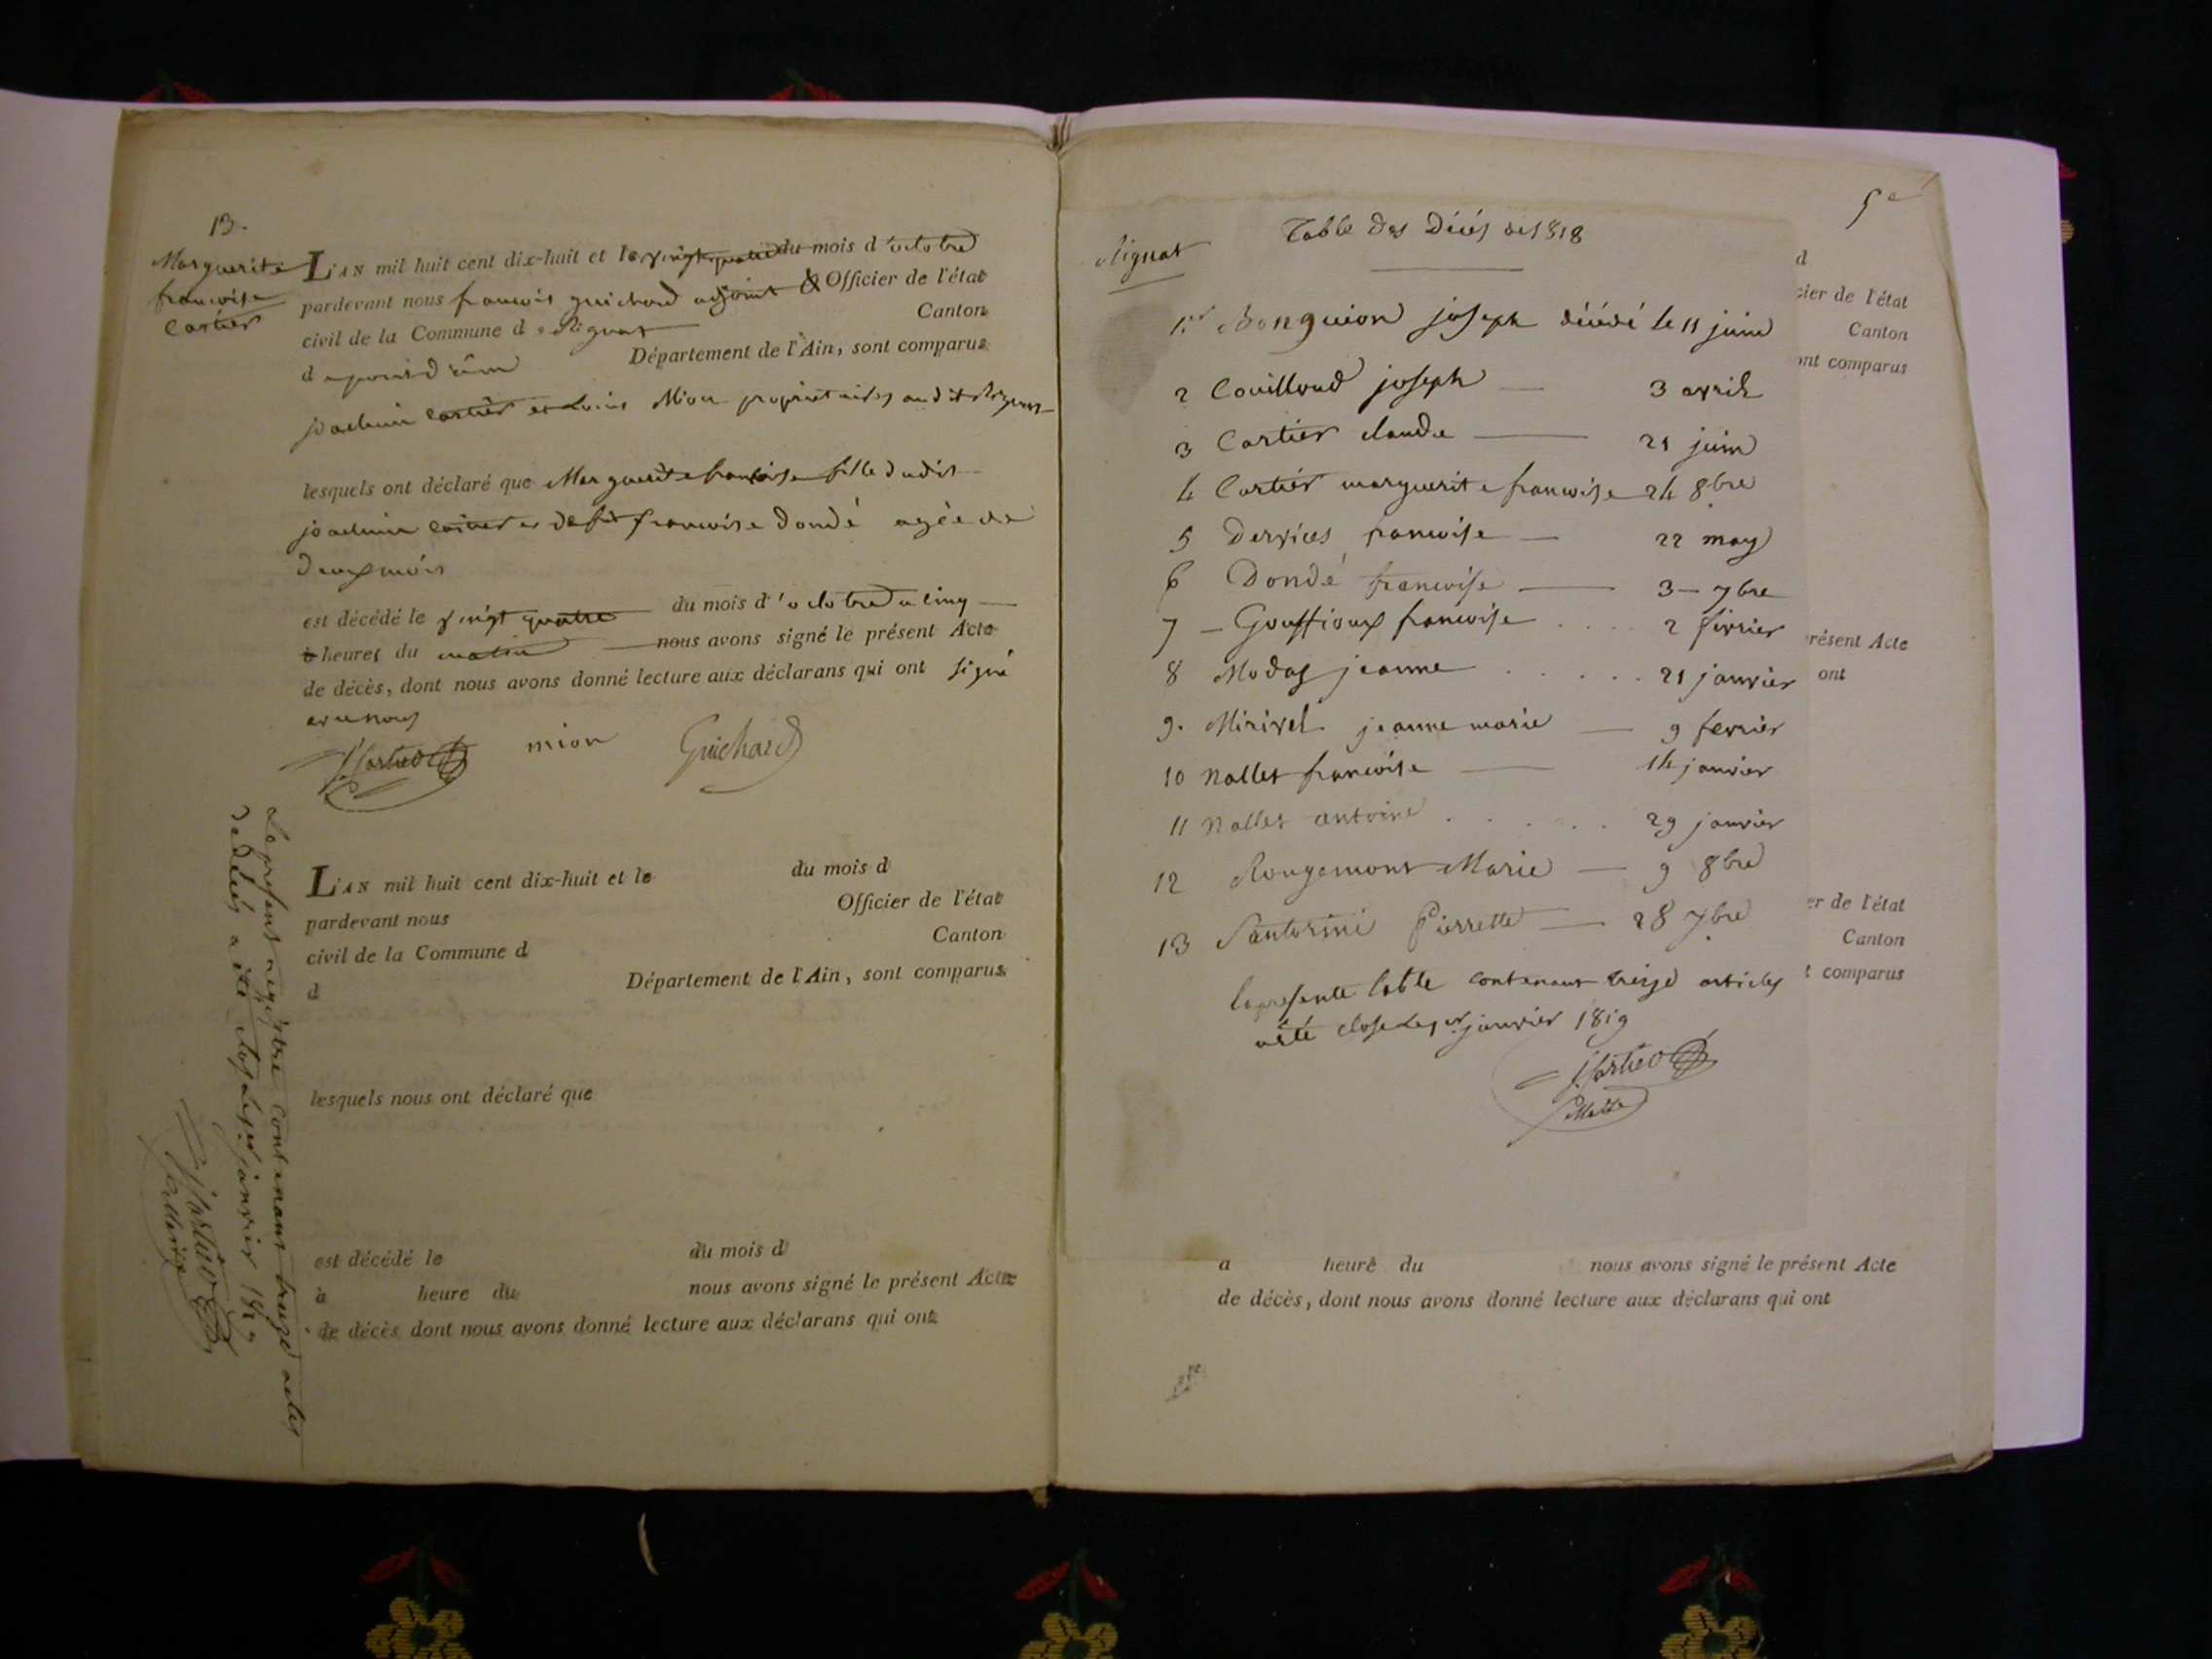 13.
Marguerite
francoise
Cartier
L'AN mil huit cent dix-huit et le vingt quatre du mois d'octobre
pardevant nous francois guichard adjoint Officier de l'état
civil de la Commune de Rignat Canton
d Département de l'Ain, sont comparus
joachim Cartier et Louis Mion proprietaires audit Rignat
lesquels ont déclaré que Marguerite francoise fille dudit
joachim Cartier et francoise Dondé agée de
deux mois
est décédé le vingt quatre du mois d'octobre a cinq
heures du matin nous avons signé le présent Acte
de décès, dont nous avons donné lecture aux déclarans qui ont signé
avec nous
J Cartier mion Guichard
L'AN mil huit cent dix-huit et le du mois d
pardevant nous Officier de l'état
civil de la Commune d Canton
d Département de l'Ain, sont comparus
lesquels nous ont déclaré que
est décédé le du mois d
à heure du nous avons signé le présent Acte
de décès dont nous avons donné lecture aux déclarans qui ont
Le present registre contenant treize actes
de décés a été clos le 1er janvier 1819
J Cartier
5e
Table des Décés de 1818
Rignat
1er Bonguion joseph décédé le 11 juin
2 Couilloud joseph 3 avril
3 Cartier claude 21 juin
4 Cartier marguerite francoise 24 8bre
5 Dervies francoise 22 may
6 Dondé francoise 3 7bre
7 Gouffioux francoise 2 février
8 Modas jeanne 21 janvier
9. Mirivel jeanne marie 9 fevrier
10 Nallet francoise 14 janvier
11 Nallet antoine 29 janvier
12 Rougemont Marie 9 8bre
13 Santorini Pierrette 28 7bre
la presente table contenant treize articles
a été close le 1er janvier 1819
J Cartier
d
cier de l'état
Canton
ont comparus
présent Acte
ont
er de l'état
Canton
t comparus
a heure du nous avons signé le présent Acte
de décès, dont nous avons donné lecture aux déclarans qui ont